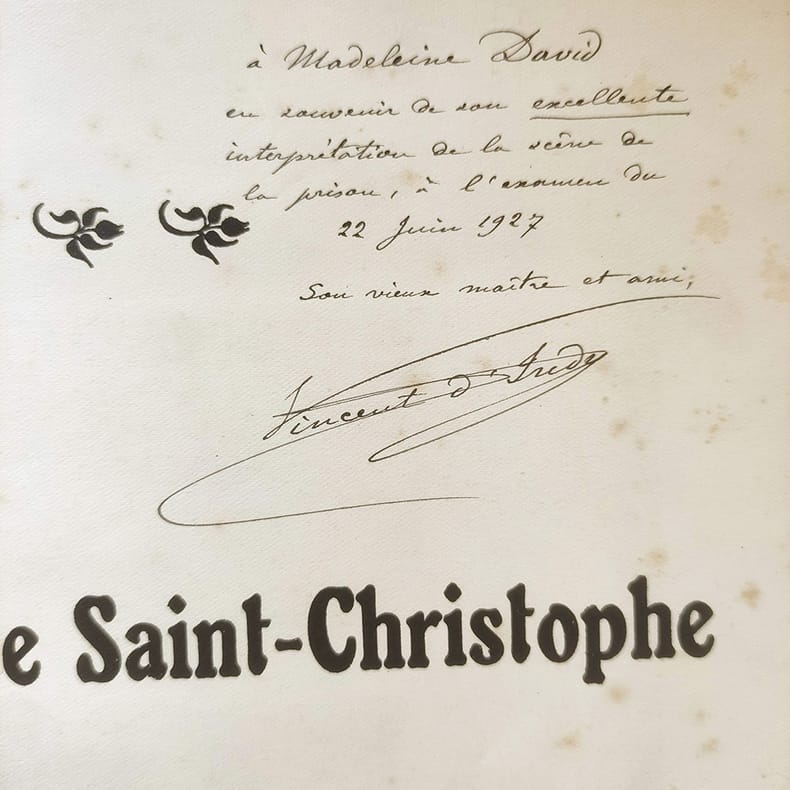 à Madeleine David
en souvenir de son excellente
interprétation de la scène de
la prison, à l'examen du
22 Juin 1927
Son vieux maître et ami,
Vincent d'Indy
e Saint-Christophe